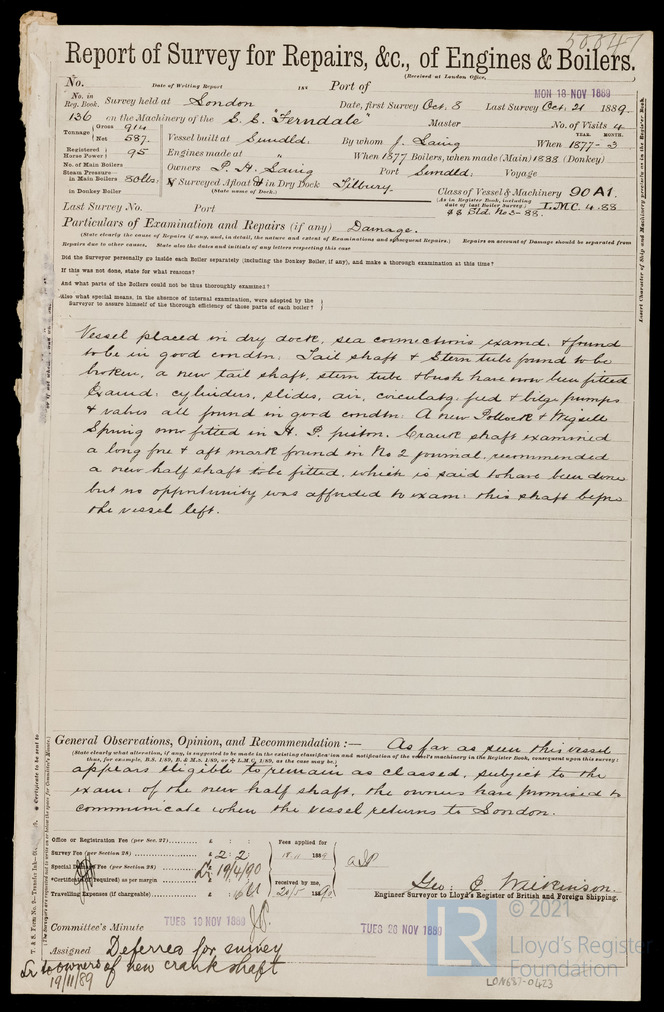 50047
Report of Survey for Repairs, &c., of Engines & Boilers.
(Received at London Office,
No. Date of Writing Report 188 Port of
MON 18 NOV 1889
No. in Reg. Book. Survey held at London Date, first Survey Oct. 8 Last Survey Oct. 21 1889
136 on the Machinery of the S. S. "Ferndale" Master No. of Visits 4
Tonnage Gross 914 Net 587. Vessel built at Sundld. By whom J. Laing When 1877-3
YEAR. MONTH.
Registered Horse Power 95 Engines made at " When 1877 Boilers, when made (Main) 1888 (Donkey)
No. of Main Boilers Owners P. H. Laing Port Sundld. Voyage
Steam Pressure in Main Boilers 80lbs. If Surveyed Afloat or in Dry Dock Tilbury.
in Donkey Boiler (State name of Dock.)
Class of Vessel & Machinery 90A1.
(As in Register Book, including date of last Boiler Survey.) L.M.C. 4.88
Last Survey No. Port
Particulars of Examination and Repairs (if any) Damage.
(State clearly the cause of Repairs if any, and, in detail, the nature and extent of Examinations and subsequent Repairs.) Repairs on account of Damage should be separated from
Repairs due to other causes. State also the dates and initials of any letters respecting this case
Did the Surveyor personally go inside each Boiler separately (including the Donkey Boiler, if any), and make a thorough examination at this time?
If this was not done, state for what reasons?
And what parts of the Boilers could not be thus thoroughly examined?
Also what special means, in the absence of internal examination, were adopted by the
Surveyor to assure himself of the thorough efficiency of those parts of each boiler?
Vessel placed in dry dock, sea connections examd: & found
to be in good condtn: Tail shaft & Stern tube found to be
broken, a new tail shaft, stern tube & bush have now been fitted
Examd: cylinders, slides, air, circulatg: feed & bilge pumps
& valves all found in good condtn: A new Pollock & Wigzell
Spring now fitted in H. P. piston. Crank shaft examined
a long fore & aft mark found in No 2 journal, recommended
a new half shaft to be fitted, which is said to have been done
but no opportunity was afforded to exam: this shaft before
the vessel left.
General Observations, Opinion, and Recommendation :— As far as seen this vessel
(State clearly what alteration, if any, is suggested to be made in the existing classification and notification of the vessel's machinery in the Register Book, consequent upon this survey:
thus, for example, B.S. 1/89, B. & M.S. 1/89, or L.M.C. 1/89, as the case may be.)
appears eligible to remain as classed, subject to the
exam: of the new half shaft, the owners have promised to
communicate when the vessel returns to London.
Office or Registration Fee (per Sec. 27) £
Survey Fee (per Section 28) £ 2 : 2
Special Damage Fee (per Section 28) £ Lr 19/4/90
Certificate (if required) as per margin £
Travelling Expenses (if chargeable) £
Fees applied for
18.11 1889
received by me,
20/5 1890
Geo: C. Watkinson.
Engineer Surveyor to Lloyd's Register of British and Foreign Shipping.
Committee's Minute TUES 19 NOV 1889
TUES 26 NOV 1889
Assigned Deferred for survey
of new crank shaft
Lr to owners
19/11/89
© 2021
LR
Lloyd's Register
Foundation
LON687-0423